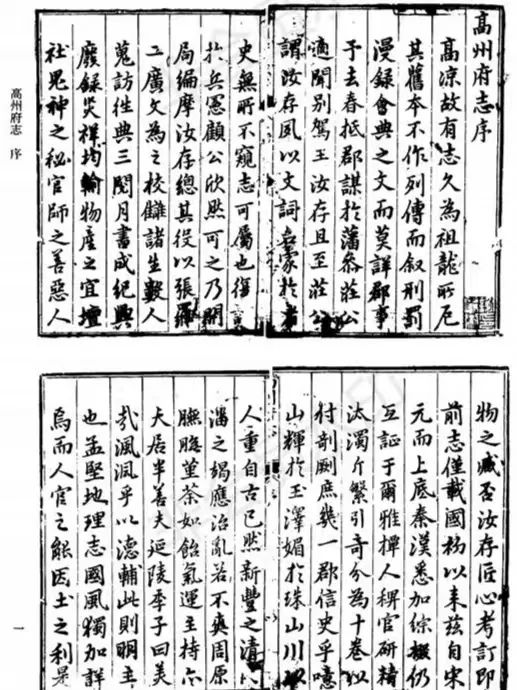 高州府志序
高凉故有志久為祖龍所厄
其舊本不作列傳而叙刑罰
漫録會典之文而莫詳郡事
予去春抵郡謀於藩叅莊公
適聞別駕王汝存且至莊公
謂汝存夙以文詞名家於書
史無所不窺志可屬也復
於兵憲顧公欣然可之乃開
局編摩汝存總其役以張
二廣文為之校讎諸生數人
蒐訪往典三閱月書成紀興
廢録災祥均輸物產之宜壇
社鬼神之秘官師之善惡人
物之臧否汝存匠心考訂即
前志僅載國初以来茲自宋
元而上底秦漢悉加綜輟仍
互証于爾雅撢人稗官研精
汰濁斤繁引奇分為十卷以
付剞劂庶幾一郡信史乎噫
山輝於玉澤媚於珠山川以
人重自古已然新豐之清
瀋之應治亂若不爽周原
膴膴堇荼如飴氣運主持
夫居半善夫延陵季子曰美
哉渢渢乎以德輔此則明主
也孟堅地理志國風獨加詳
焉而人官之能因土之利是
高州府志 序
一